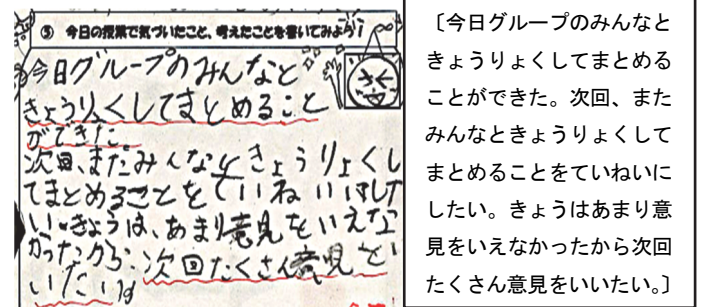 ⑤ 今日の授業で気づいたこと、考えたことを書いてみよう！
今日グループのみんなと
きょうりょくしてまとめること
ができた。
次回、またみんなときょうりょくし
てまとめることをていねいにした
い。きょうは、あまり意見をいえな
かったから、次回たくさん意見をい
いたいです
〔今日グループのみんなと
きょうりょくしてまとめる
ことができた。次回、また
みんなときょうりょくして
まとめることをていねいに
したい。きょうはあまり意
見をいえなかったから次回
たくさん意見をいいたい。〕